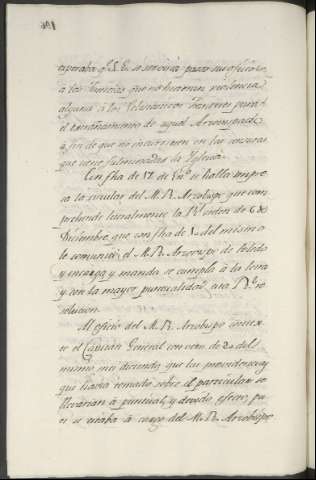 esperaba q.e S. E. se serviria pasar sus oficios
a las Justicias que no hiciesen violencia
alguna a los Eclesiasticos Franceses para
el extrañamiento de aquel Arzobispado,
a fin de que no incurriesen en las censuras
que tiene fulminadas la Iglesia.
Con fha de 17 de En.o se halla impre
sa la circular del M. R. Arzobispo que com
prehende literalmente la R.l orden de 6 de
Diciembre que con fha de 1. del mismo
le comunicó el M. R. Arzobispo de Toledo
y encarga y manda se cumpla a la letra
y con la mayor puntualidad esta R.l re
solucion.
Al oficio del M. R. Arzobispo contex
to el Capitan General con otro de 20 del
mismo mes diciendo, que las providencias
que havia tomado sobre el particular se
llevarian a puntual, y devido efecto, pu
es estaba a cargo del M. R. Arzobispo